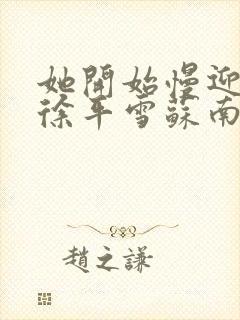 她開始慢迎
徐平雪蘇南
趙之謙